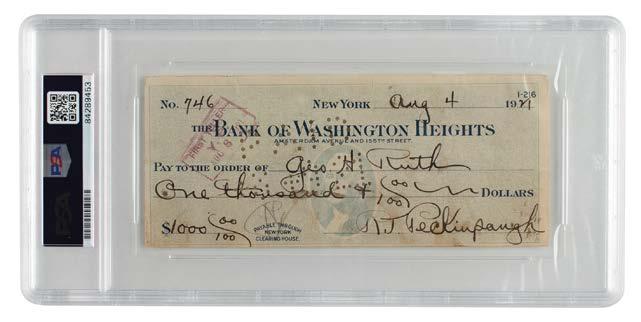 84289453
PSA
No. 746 New York Aug 4 1921 1-216
THE BANK OF WASHINGTON HEIGHTS
AMSTERDAM AVENUE AND 155TH STREET.
PAY TO THE ORDER OF Geo H Ruth
One thousand & 00/100 DOLLARS
$1000 00/100 R J Peckinpaugh
PAYABLE THROUGH
NEW YORK
CLEARING HOUSE.